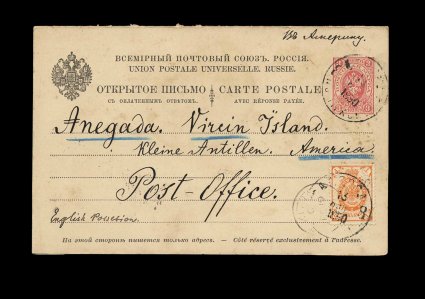 Въ Америку.
ВСЕМІРНЫЙ ПОЧТОВЫЙ СОЮЗЪ. РОССІЯ.
UNION POSTALE UNIVERSELLE. RUSSIE.
ОТКРЫТОЕ ПИСЬМО CARTE POSTALE
СЪ ОПЛАЧЕННЫМЪ ОТВѢТОМЪ. AVEC RÉPONSE PAYÉE.
Anegada. Vircin Island.
Kleine Antillen. America.
Post-Office.
English Possesion.
На этой сторонѣ пишется только адресъ. — Côté réservé exclusivement à l'adresse.